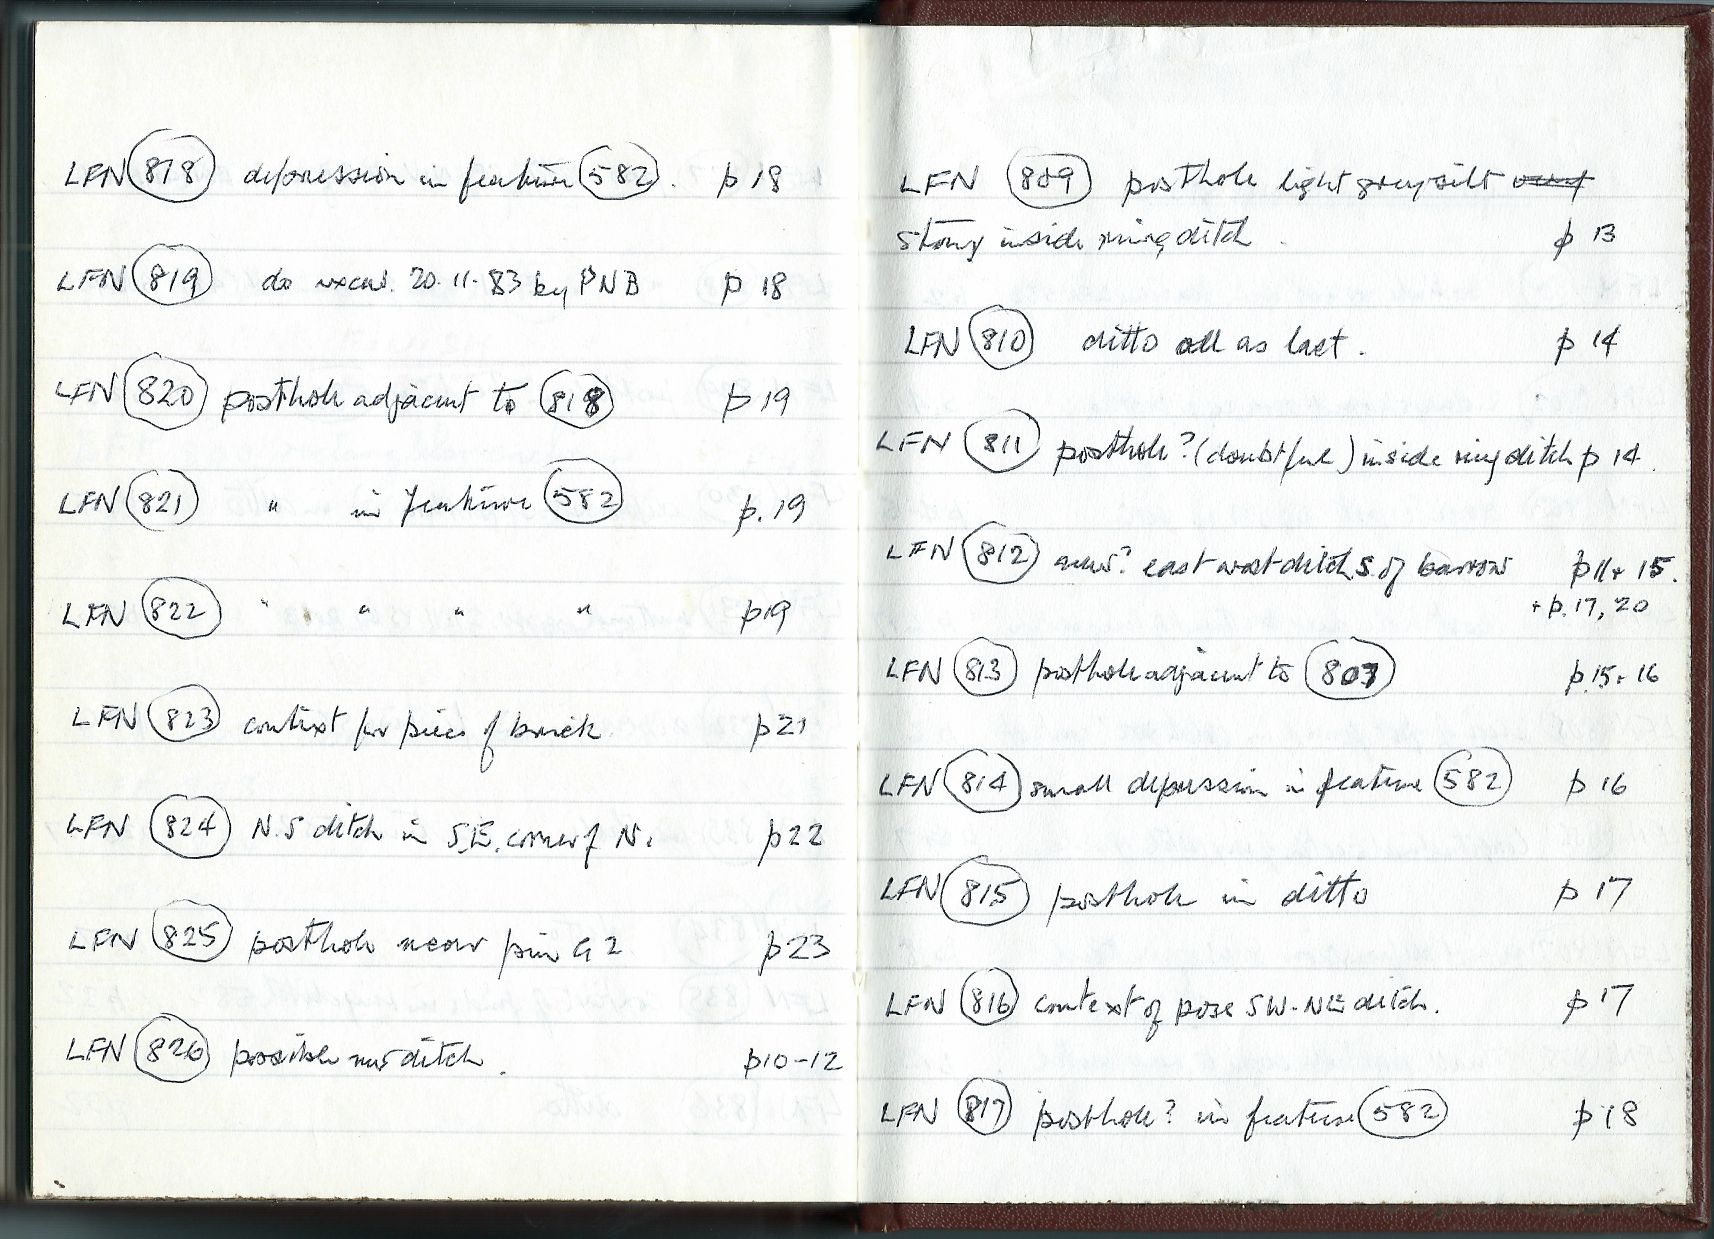 LFN 818 depression in feature 582. p 18
LFN 819 do excav. 20.11.83 by PNB p 18
LFN 820 posthole adjacent to 818 p 19
LFN 821 " in feature 582 p. 19
LFN 822 " " " " p19
LFN 823 context for piece of brick p21
LFN 824 N.S ditch in S.E. corner of N. p22
LFN 825 posthole near pin G2 p23
LFN 826 possible ditch. p10-12
LFN 809 posthole light grey silt
stony inside ring ditch p 13
LFN 810 ditto all as last. p 14
LFN 811 posthole? (doubtful) inside ring ditch p 14.
LFN 812 new? east west ditch S. of barrow p11+ 15.
+ p. 17, 20
LFN 813 posthole adjacent to 807 p.15+16
LFN 814 small depression in feature 582 p 16
LFN 815 posthole in ditto p 17
LFN 816 context of poss SW-NE ditch. p 17
LFN 817 posthole? in feature 582 p 18